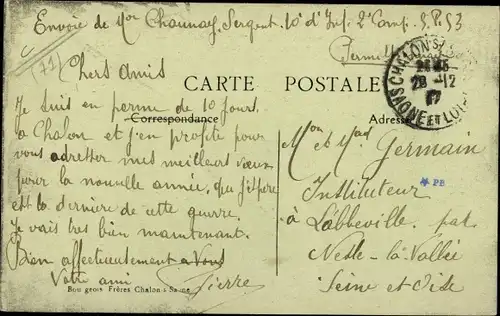 Envoie de Mor Chaunay, Sergent. 10e d'Inf. 2e Comp. S.P. 53
(71)
Chers Amis
CARTE POSTALE
CHALON S/
SAONE ET LOIRE
28 -12
17
Correspondance
Adresse
Je suis en perme de 10 jours
à Chalon et j'en profite pour
vous adresser mes meilleurs vœux
pour la nouvelle année, que j'espère
est la dernière de cette guerre.
Je vais très bien maintenant.
Bien affectueusement à Vous
Votre ami Pierre
Mon et Mad Germain
Instituteur
* PB
à Labbeville par
Nesle-la-Vallée
Seine et Oise
Bourgeois Frères Chalon s Saone